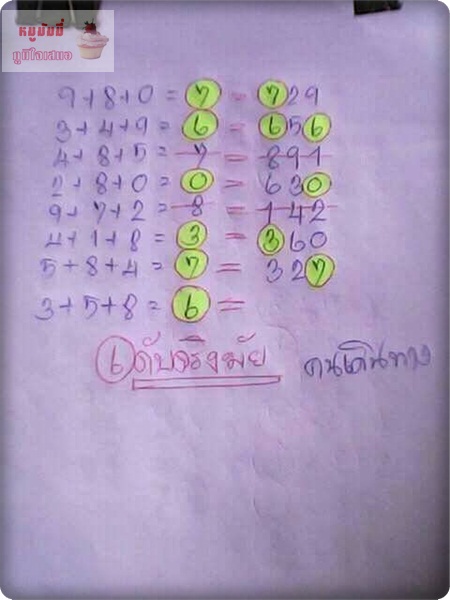 หมูมัมมี่
ภูมิใจเสนอ
9+8+0 = 7 = 729
3+4+9 = 6 = 656
4+8+5 = 7 = 891
2+8+0 = 0 = 630
9+7+2 = 8 = 142
4+1+8 = 3 = 360
5+8+4 = 7 = 327
3+5+8 = 6 =
6 ดับจริงมัย คนเดินทาง